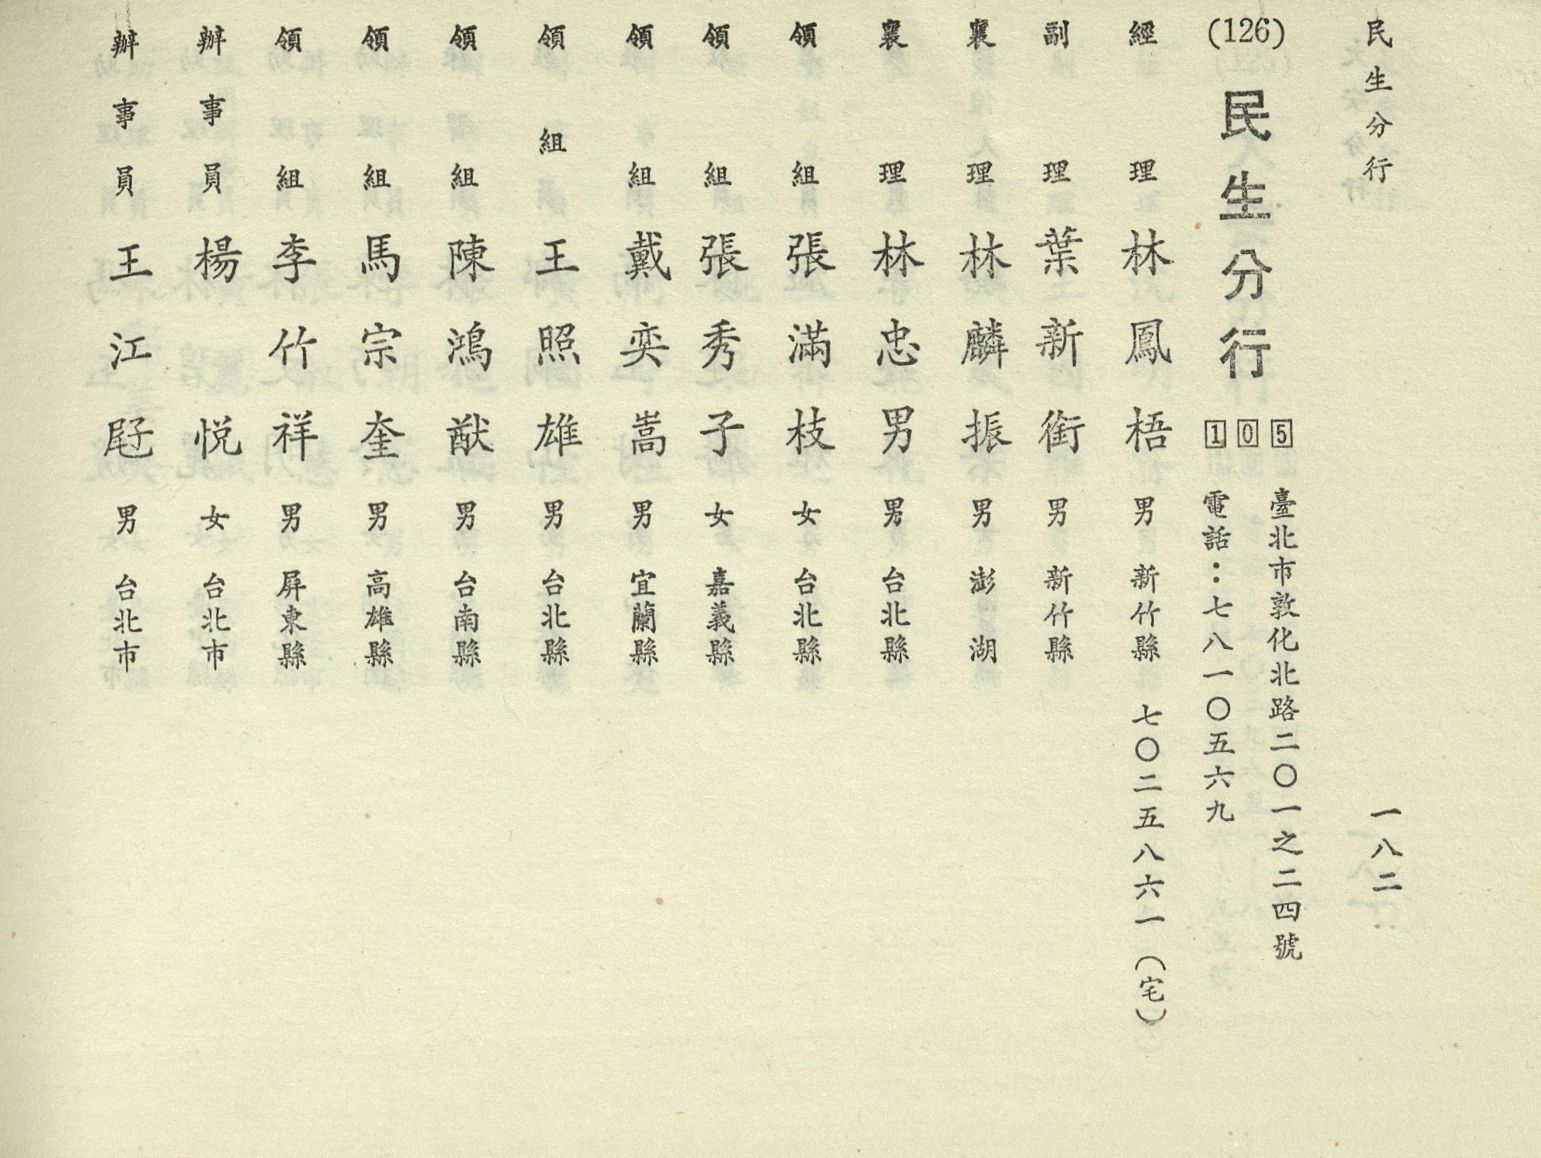 民生分行 一八二
(126) 民生分行
105 臺北市敦化北路二〇一之二四號
電話：七八一〇五六九
經理 林鳳梧 男 新竹縣 七〇二五八六一（宅）
副理 葉新銜 男 新竹縣
襄理 林麟振 男 澎湖
襄理 林忠男 男 台北縣
領組 張滿枝 女 台北縣
領組 張秀子 女 嘉義縣
領組 戴奕嵩 男 宜蘭縣
領組 王照雄 男 台北縣
領組 陳鴻猷 男 台南縣
領組 馬宗奎 男 高雄縣
領組 李竹祥 男 屏東縣
辦事員 楊悅 女 台北市
辦事員 王江 男 台北市